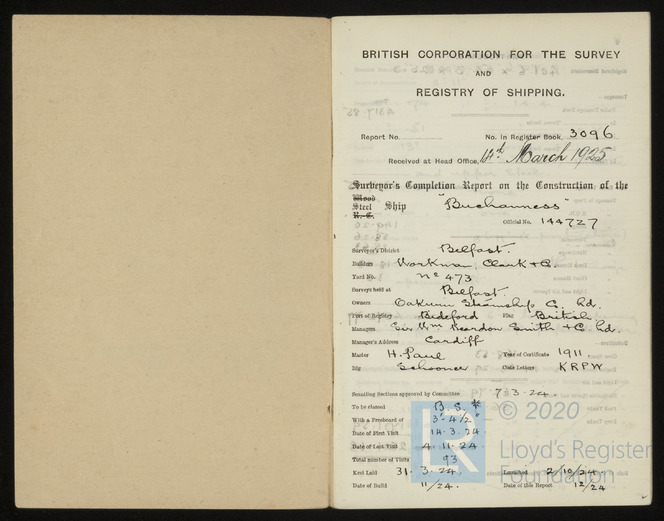 BRITISH CORPORATION FOR THE SURVEY
AND
REGISTRY OF SHIPPING.
Report No. No. in Register Book 3096
Received at Head Office, March 1925
Surveyor's Completion Report on the Construction of the
Wood
Steel Ship "Buchanness"
R. C.
Official No. 144727
Surveyor's District Belfast.
Builders Workman, Clark & Co.
Yard No. No 473
Surveys held at Belfast.
Owners Oakwin Steamship Co. Ld.
Port of Registry Bideford Flag British
Managers Sir Wm Reardon Smith & Co. Ld.
Manager's Address Cardiff
Master H. Paul Year of Certificate 1911
Rig Schooner Code Letters KRPW
Scantling Sections approved by Committee 7/3.24.
To be classed B.S.*
With a Freeboard of 3'-4½"
Date of First Visit 14.3.24.
Date of Last Visit 4.11.24
Total number of Visits 93
Keel Laid 31.3.24. Launched 2/10/24.
Date of Build 11/24. Date of this Report 12/24
LR © 2020
Lloyd's Register
Foundation